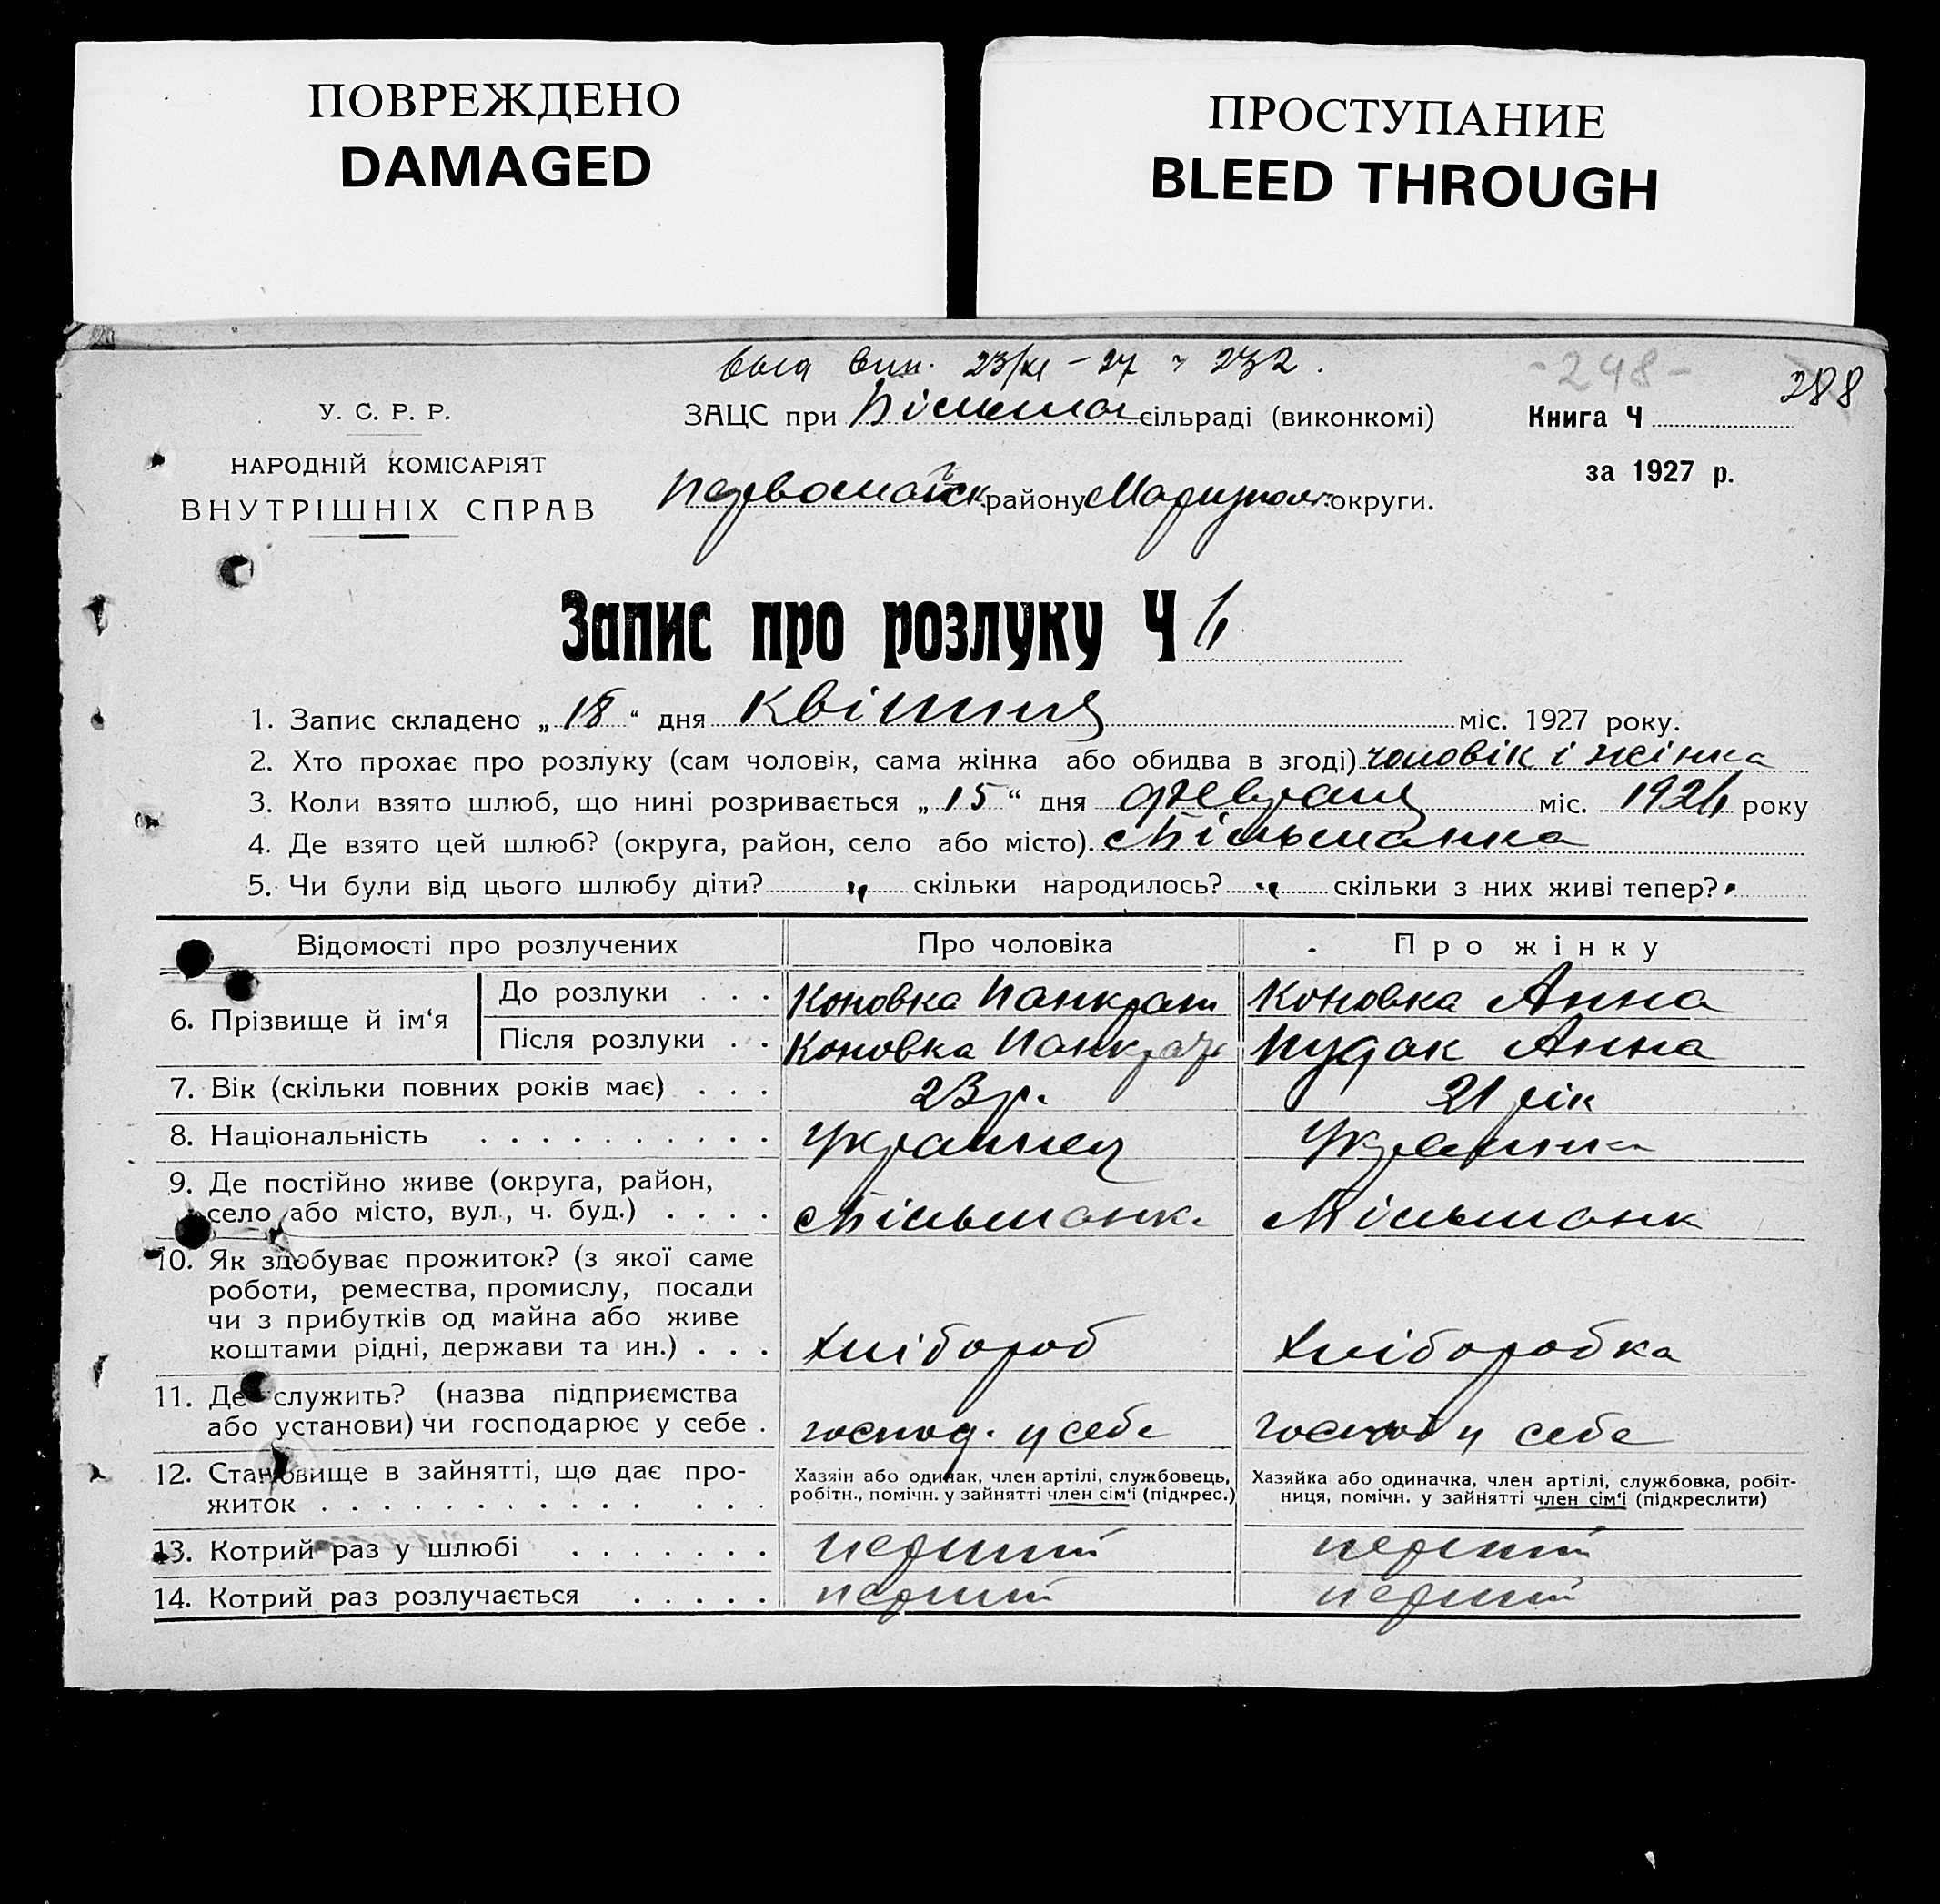 ПОВРЕЖДЕНО
DAMAGED
ПРОСТУПАНИЕ
BLEED THROUGH
23/XI - 27 232.
-248-
288
У. С. Р. Р.
НАРОДНІЙ КОМІСАРІЯТ
ВНУТРІШНІХ СПРАВ
ЗАЦС при сільраді (виконкомі)
Первомайск. району Маріупол. округи.
Книга Ч
за 1927 р.
Запис про розлуку Ч
1. Запис складено „ 18 “ дня Квітня міс. 1927 року.
2. Хто прохає про розлуку (сам чоловік, сама жінка або обидва в згоді) чоловік і жінка
3. Коли взято шлюб, що нині розривається „ 15 “ дня февраля міс. року
4. Де взято цей шлюб? (округа, район, село або місто).
5. Чи були від цього шлюбу діти? „ скільки народилось? „ скільки з них живі тепер? „
Відомості про розлучених Про чоловіка Про жінку
6. Прізвище й ім‘я
До розлуки . . . Коновка Панкрат Коновка Анна
Після розлуки . . Коновка Панкрат Пудак Анна
7. Вік (скільки повних років має) . . . 23 р. 21 рік
8. Національність . . . . . . . . . . Украинец Украинка
9. Де постійно живе (округа, район,
село або місто, вул., ч. буд.) . . . .
10. Як здобуває прожиток? (з якої саме
роботи, ремества, промислу, посади
чи з прибутків од майна або живе
коштами рідні, держави та ин.) . . . Хлібороб Хліборобка
11. Де служить? (назва підприємства
або установи) чи господарює у себе . господ. у себе господ у себе
12. Становище в зайнятті, що дає про-
житок . . . . . . . . . . . . . .
Хазяін або одинак, член артілі, службовець,
робітн., помічн. у зайнятті член сім‘ї (підкрес.)
Хазяйка або одиначка, член артілі, службовка, робіт-
ниця, помічн. у зайнятті член сім‘ї (підкреслити)
13. Котрий раз у шлюбі . . . . . . . перший перший
14. Котрий раз розлучається . . . . . перший перший